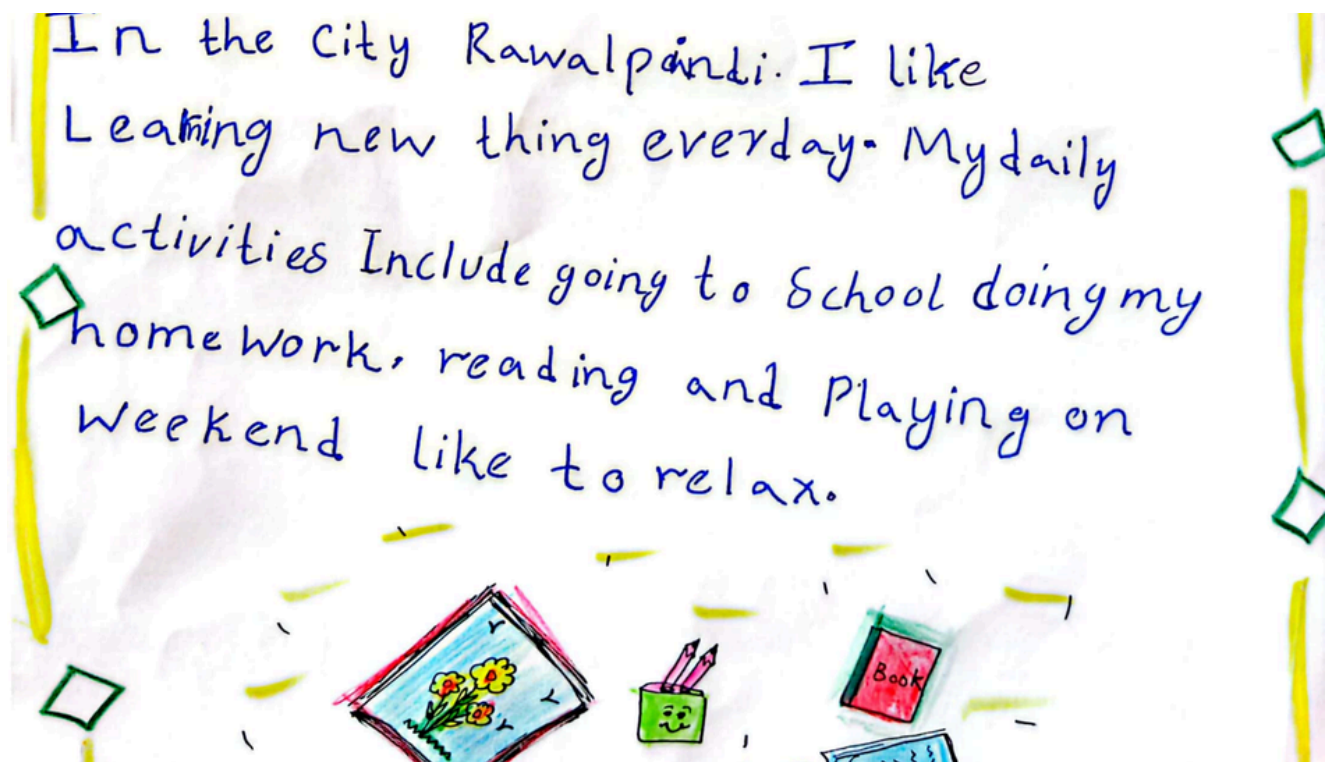 In the City Rawalpindi. I like
Learning new thing everday. My daily
activities Include going to School doing my
home work, reading and Playing on
weekend like to relax.
Book